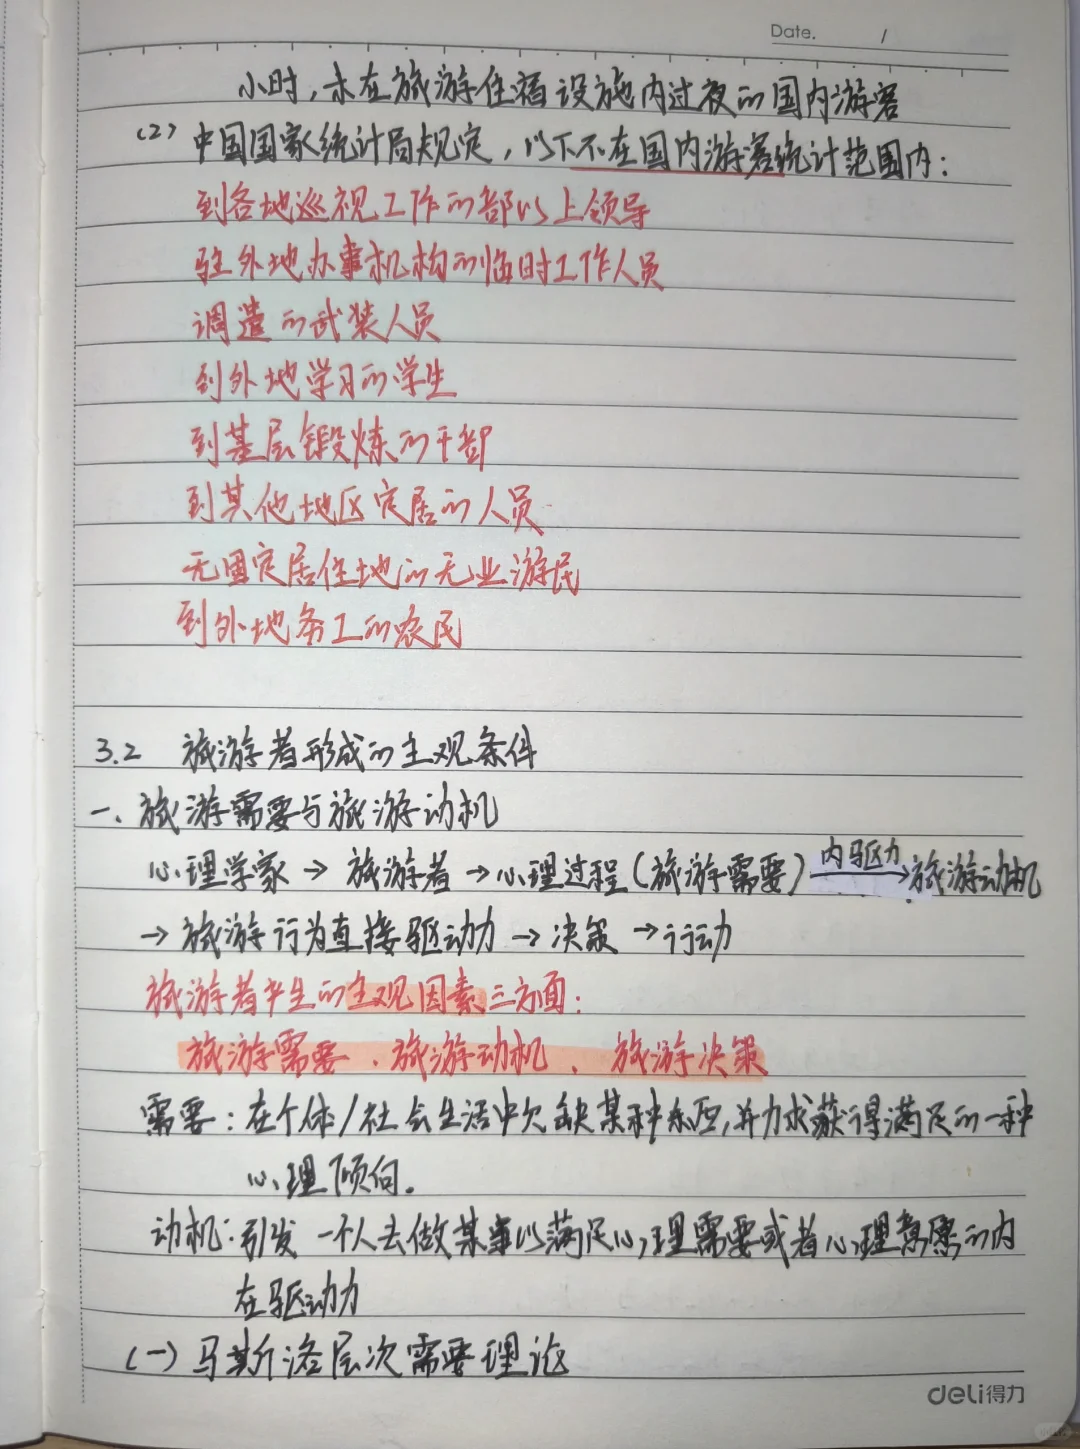 Date. /
小时，未在旅游住宿设施内过夜的国内游客
(2) 中国国家统计局规定，以下不在国内游客统计范围内：
到各地巡视工作的部以上领导
驻外地办事机构的临时工作人员
调遣的武装人员
到外地学习的学生
到基层锻炼的干部
到其他地区定居的人员
无固定居住地的无业游民
到外地务工的农民
3.2 旅游者形成的主观条件
一、旅游需要与旅游动机
心理学家→旅游者→心理过程(旅游需要)内驱力→旅游动机
→旅游行为直接驱动力→决策→行动
旅游者产生的主观因素三方面：
旅游需要、旅游动机、旅游决策
需要：在个体/社会生活中欠缺某种东西，并力求获得满足的一种
心理倾向。
动机：引发一个人去做某事以满足心理需要或者心理意愿的内
在驱动力
(一)马斯洛层次需要理论
deli得力